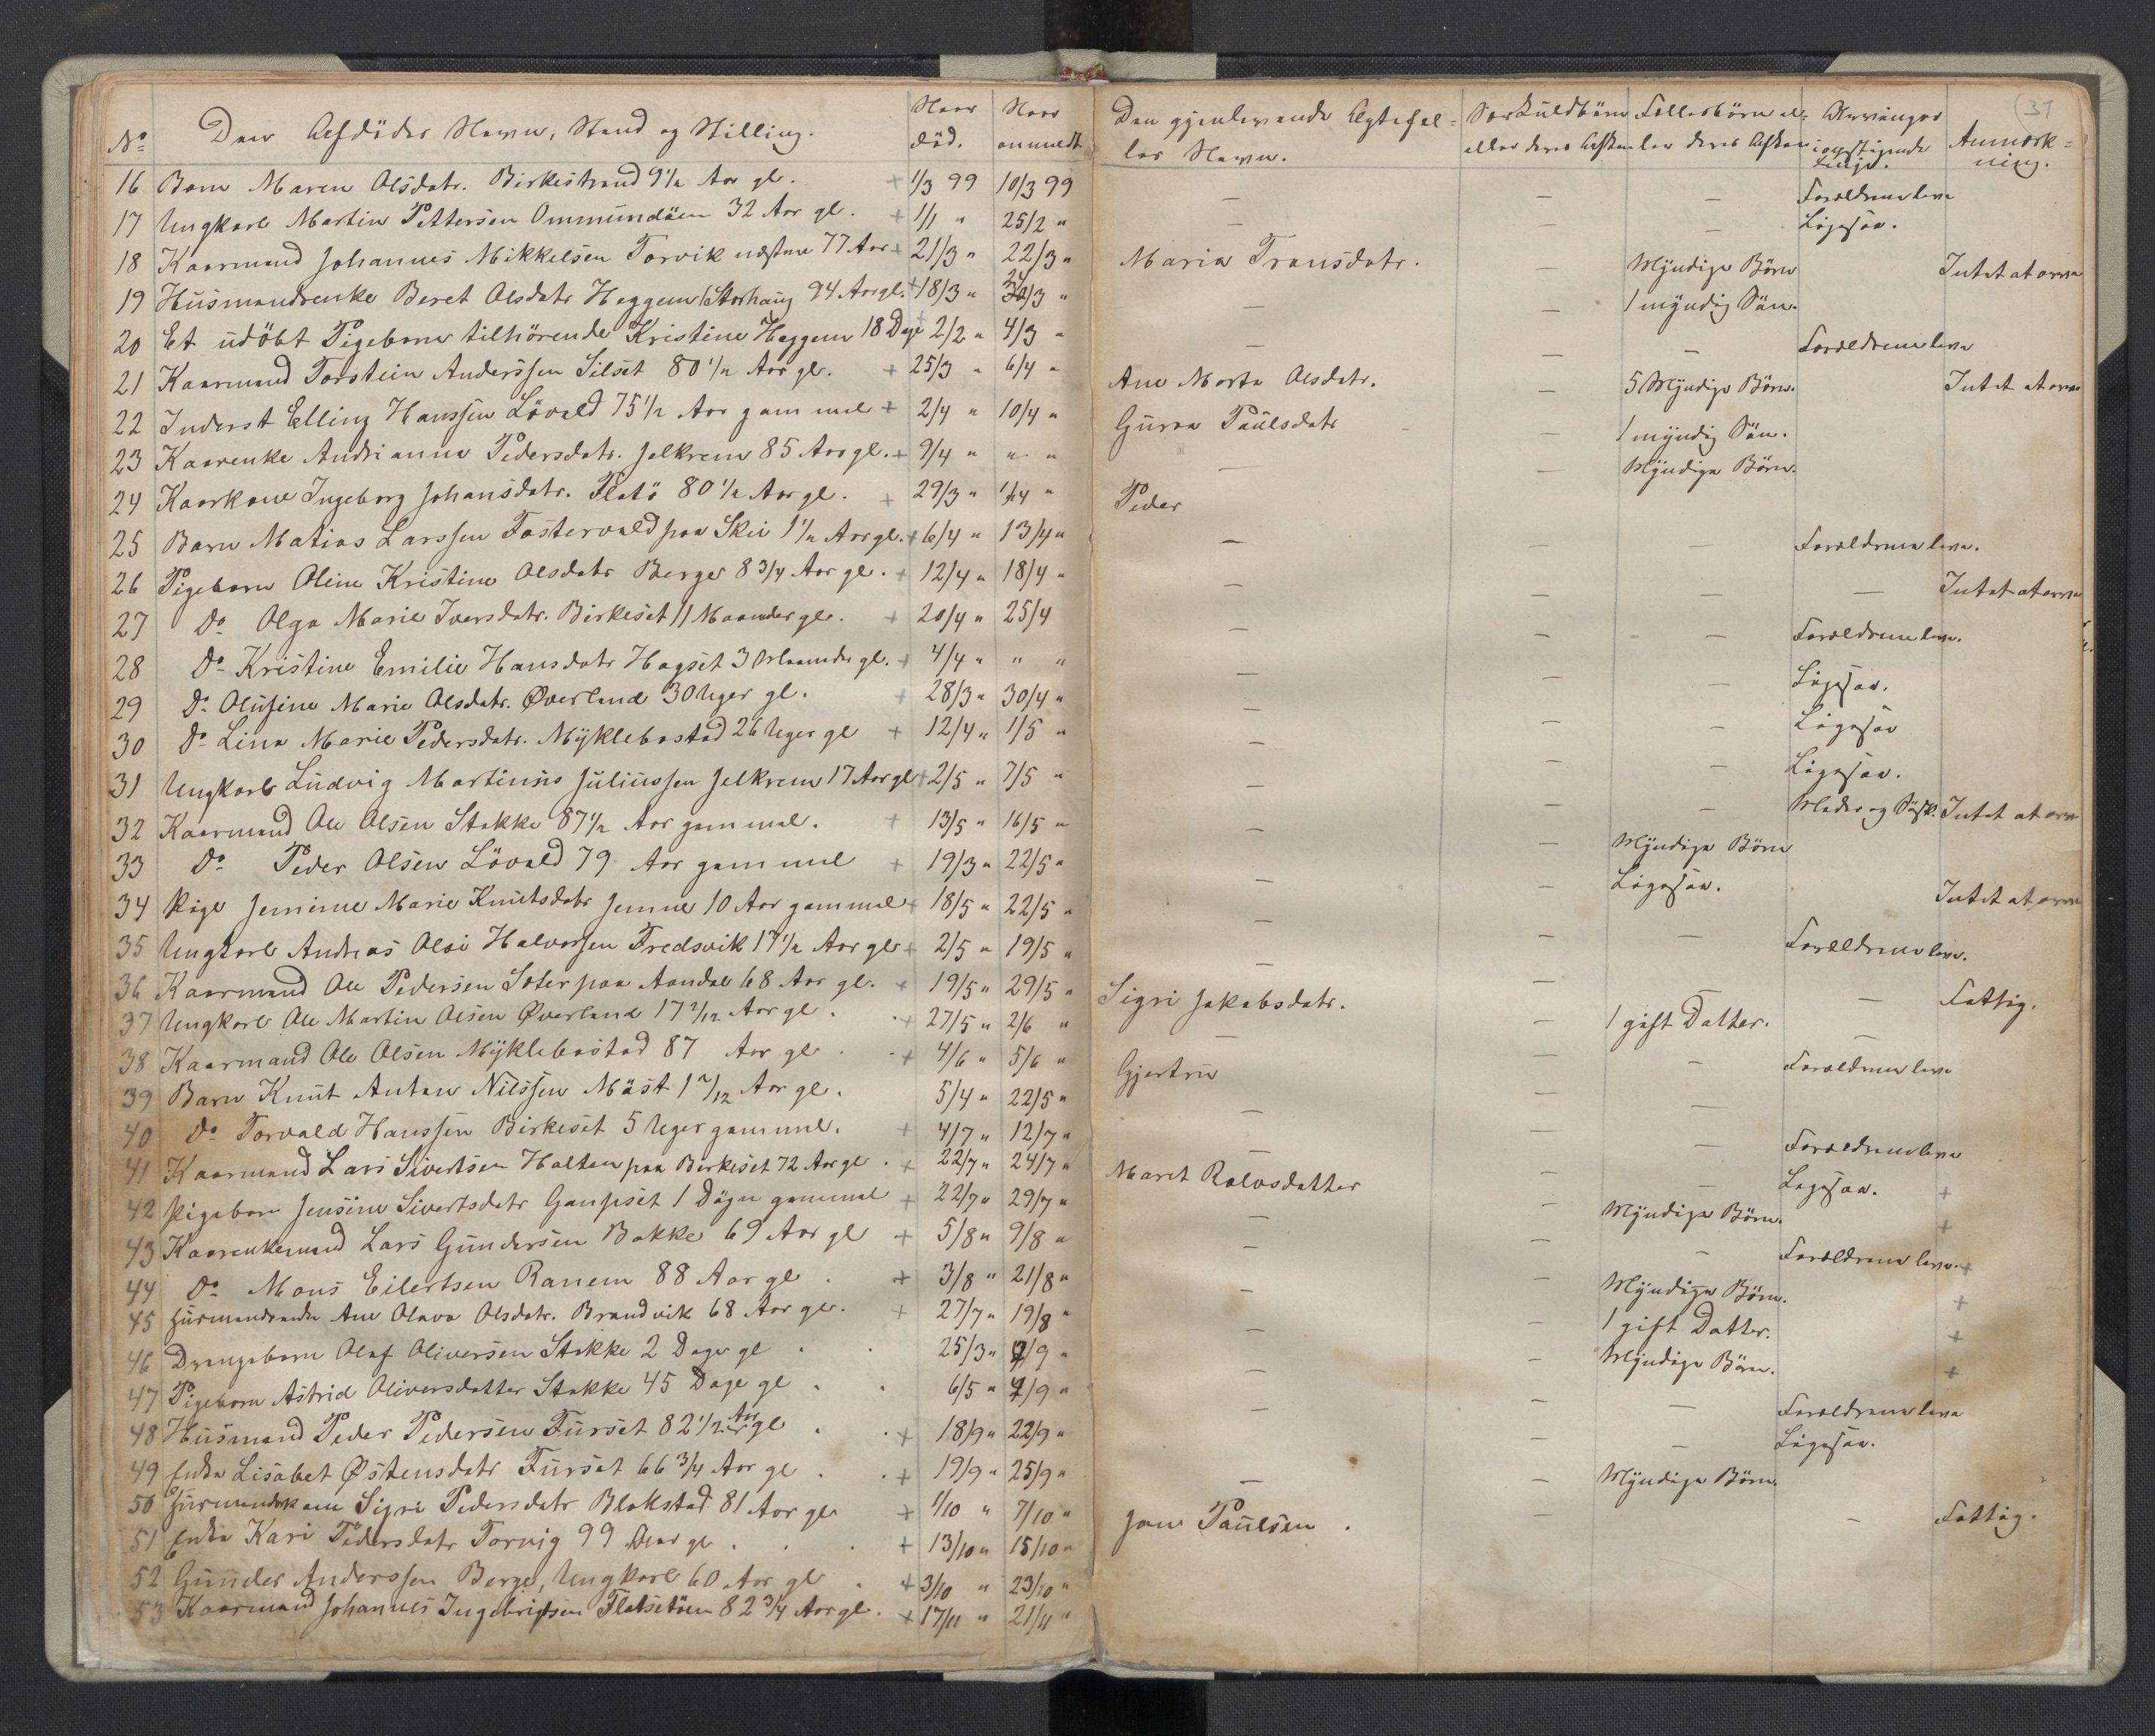 (31
No Den Afdödes Navn, Stand og Stilling. Naar död. Naar anmeldt Den gjenlevende Ægtefælles Navn. Særkuldbörn eller deres Afkom Fællesbörn eller deres Afkom Arvinger i opstigende Linje. Anmærkning.
16 Barn Maren Olsdatr. Birkestrand 9 1/2 Aar gl. + 1/3 99 10/3 99 — — — Forældrene leve
17 Ungkarl Martin Pettersen Ommundöen 32 Aar gl. + 1/1 " 25/2 " — — — Ligesaa.
18 Kaarmand Johannes Mikkelsen Torvik næsten 77 Aar + 21/3 " 22/3 " Maria Tronsdatr. — Myndige Börn Intet at arve
19 Husmandsenke Beret Olsdatr Heggem/Storhaug 94 Aar gl. + 18/3 " 24/3 " — — 1 myndig Sön.
20 Et udöbt Pigebarn tilhörende Kristine Heggem 18 Dage + 2/2 " 4/3 " — — — Forældrene leve
21 Kaarmand Torstein Anderssen Silset 80 1/2 Aar gl. + 25/3 " 6/4 " Ane Marta Olsdatr. — 5 Myndige Börn. Intet at arve
22 Inderst Elling Hanssen Lövold 75 1/2 Aar gammel + 2/4 " 10/4 " Guroa Paulsdatr — 1 myndig Sön.
23 Kaarenke Andrianna Pedersdatr. Jelkrem 85 Aar gl. + 9/4 " " " — — Myndige Börn.
24 Kaarkone Ingeborg Johansdatr. Flatö 80 1/2 Aar gl. + 29/3 " 1/4 " Peder
25 Barn Matias Larssen Fostervold paa Skei 1 1/2 Aar gl. + 6/4 " 13/4 " — — — Forældrene leve.
26 Pigebarn Oline Kristine Olsdatr Berge 8 3/4 Aar gl. + 12/4 " 18/4 " — — — — Intet at arve
27 Do Olga Marie Iversdatr. Birkeset 11 Maaneder gl. + 20/4 " 25/4 — — — Forældrene leve.
28 Do Kristine Emilie Hansdatr Hagset 3 Maaneder gl. + 4/4 " " " — — — Ligesaa.
29 Do Olufine Marie Olsdatr. Øverland 30 Uger gl. + 28/3 " 30/4 " — — — Ligesaa
30 Do Lina Marie Pedersdatr. Myklebostad 26 Uger gl + 12/4 " 1/5 " — — — Ligesaa.
31 Ungkarl Ludvig Martinus Juliussen Jelkrem 17 Aar gl + 2/5 " 7/5 " — — — Moder og Sösk. Intet at arve
32 Kaarmand Ole Olsen Stokke 87 1/2 Aar gammel. + 13/5 " 16/5 " — — Myndige Börn
33 Do Peder Olsen Lövold 79 Aar gammel + 19/3 " 22/5 " — — Ligesaa. Intet at arve
34 Pige Jennine Marie Knutsdatr Jemne 10 Aar gammel + 18/5 " 22/5 " — — — Forældrene leve.
35 Ungkarl Andreas Olai Halvorsen Fredsvik 17 1/2 Aar gl + 2/5 " 19/5 " — — — — Fattig.
36 Kaarmand Ole Pedersen Soter paa Aandal 68 Aar gl. + 19/5 " 29/5 " Sigri Jakobsdatr. — 1 gift Datter. —
37 Ungkarl Ole Martin Olsen Øverland 17 2/12 Aar gl. + 27/5 " 2/6 " — — — Forældrene leve
38 Kaarmand Ole Olsen Myklebostad 87 Aar gl. + 4/6 " 5/6 " Gjertru — —
39 Barn Knut Anton Nilssen Möst 1 2/12 Aar gl. 5/4 " 22/5 " — — — Forældrene leve
40 Do Torvald Hanssen Birkeset 5 Uger gammel. + 4/7 " 12/7 " — — — Ligesaa. +
41 Kaarmand Lars Sivertsen Holten paa Birkeset 72 Aar gl. + 22/7 " 24/7 " Maret Rolvsdatter — Myndige Börn. +
42 Pigebarn Jensine Sivertsdatr Gaupset 1 Dögn gammel + 22/7 " 29/7 " — — — Forældrene leve. +
43 Kaarenkemand Lars Gundersen Bakke 69 Aar gl + 5/8 " 9/8 " — — Myndige Börn. +
44 Do Mons Eilertsen Ranem 88 Aar gl. + 3/8 " 21/8 " — — 1 gift Datter. +
45 Husmandsenke Ane Olava Olsdatr. Brandvik 68 Aar gl. + 27/7 " 19/8 " — — Myndige Börn. +
46 Drengebarn Olaf Oliversen Stokke 2 Dage gl. 25/3 " 2/9 " — — — Forældrene leve
47 Pigebarn Astrid Oliversdatter Stokke 45 Dage gl. 6/5 " 2/9 " — — — Ligesaa.
48 Husmand Peder Pedersen Furset 82 1/2 Aar gl. + 18/9 " 22/9 " — — Myndige Börn.
49 Enke Lisabet Østensdatr Furset 66 3/4 Aar gl. + 19/9 " 25/9 "
50 Husmandskone Sigri Pedersdatr Blakstad 81 Aar gl + 1/10 " 7/10 " Jon Paulsen. — — Fattig.
51 Enke Kari Pedersdatr Torvig 99 Aar gl. + 13/10 " 15/10 "
52 Gunder Anderssen Berge, Ungkarl 60 Aar gl. + 3/10 " 23/10 "
53 Kaarmand Johannes Ingebrigtsen Flatsetöen 82 3/4 Aar gl. + 17/11 " 21/11 "